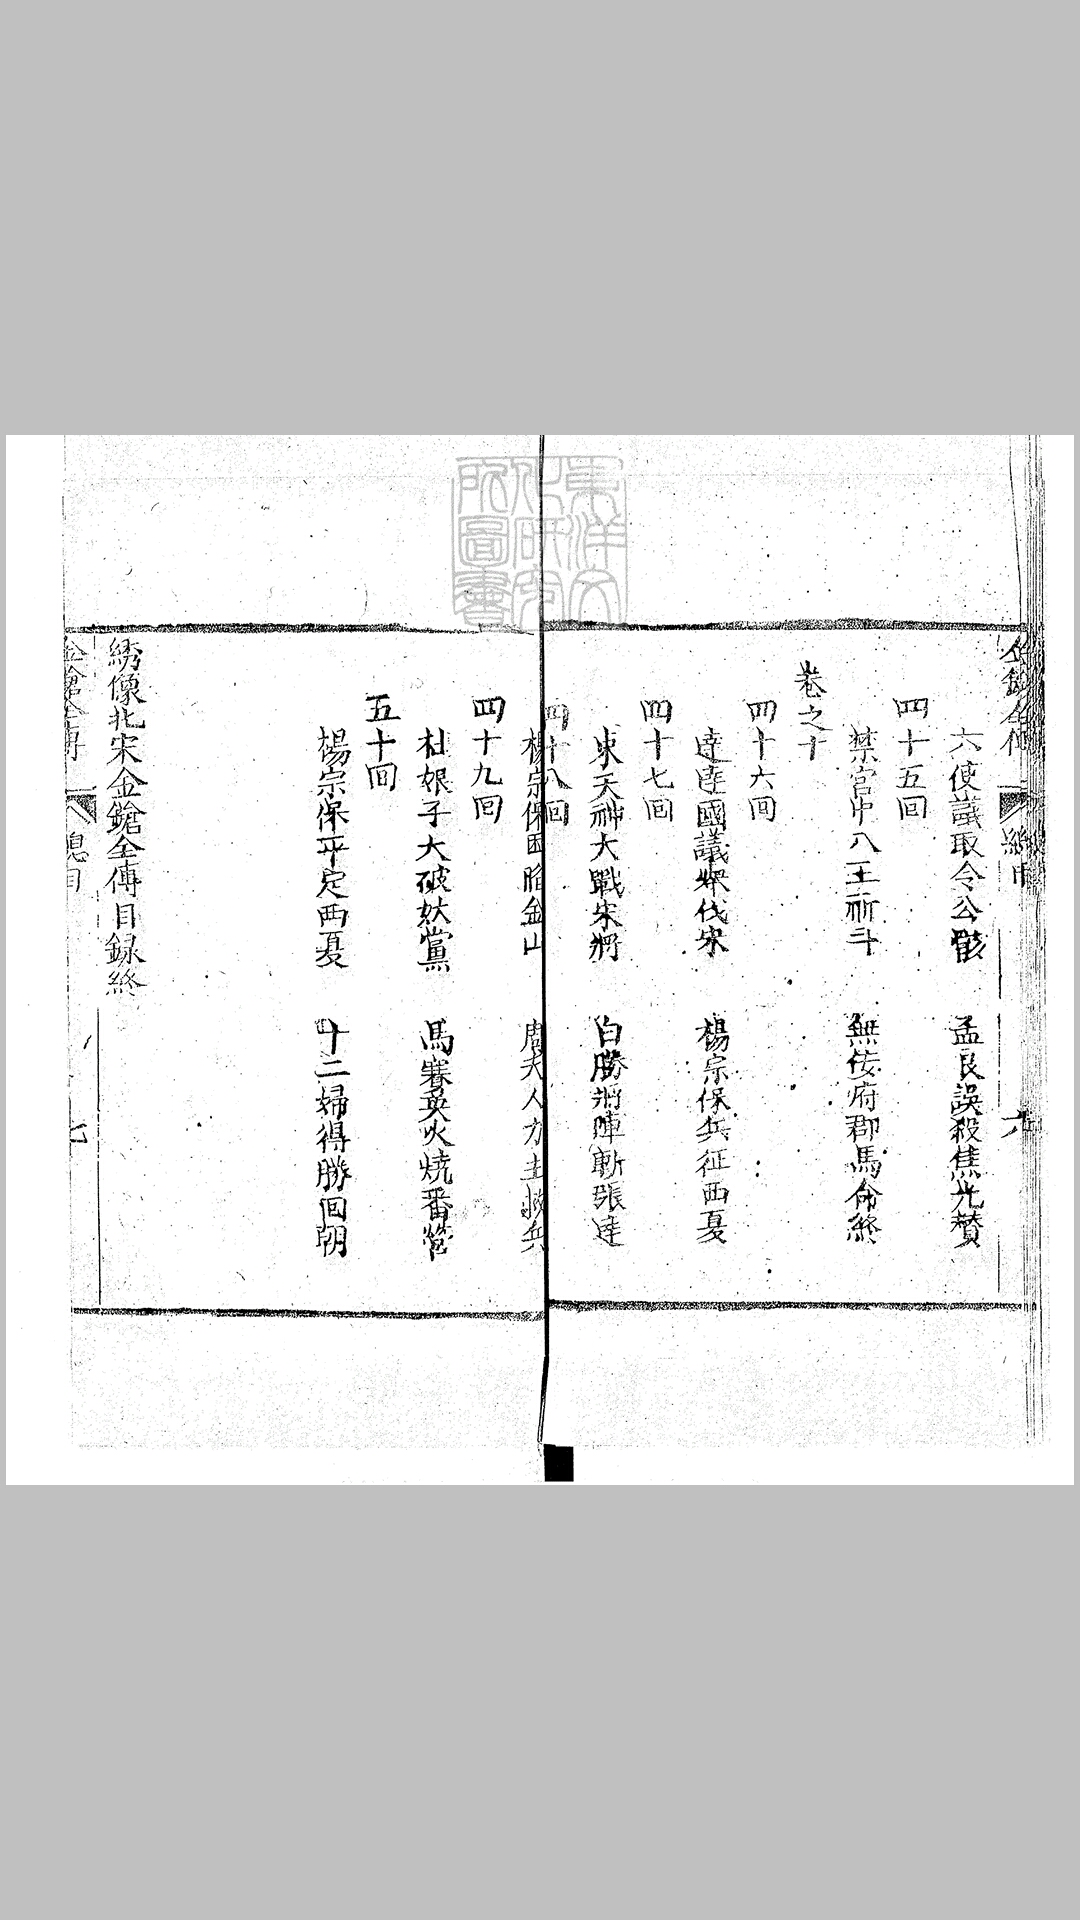 金鎗全傳
總目
六
六使議取令公骸　孟良誤殺焦光贊
四十五囬
禁宮中八王祈斗　無佞府郡馬命終
卷之十
四十六囬
達達國議舉伐宋　楊宗保兵征西夏
四十七囬
東天神大戰宋將　白勝將陣斬張達
四十八囬
楊宗保困陷金山　周夫人力主救兵
四十九囬
杜娘子大破妖黨　馬賽英火燒番營
五十囬
楊宗保平定西夏　十二婦得勝囬朝
綉像北宋金鎗全傳目録終
金鎗全傳
總目
七
東洋文化研究所圖書